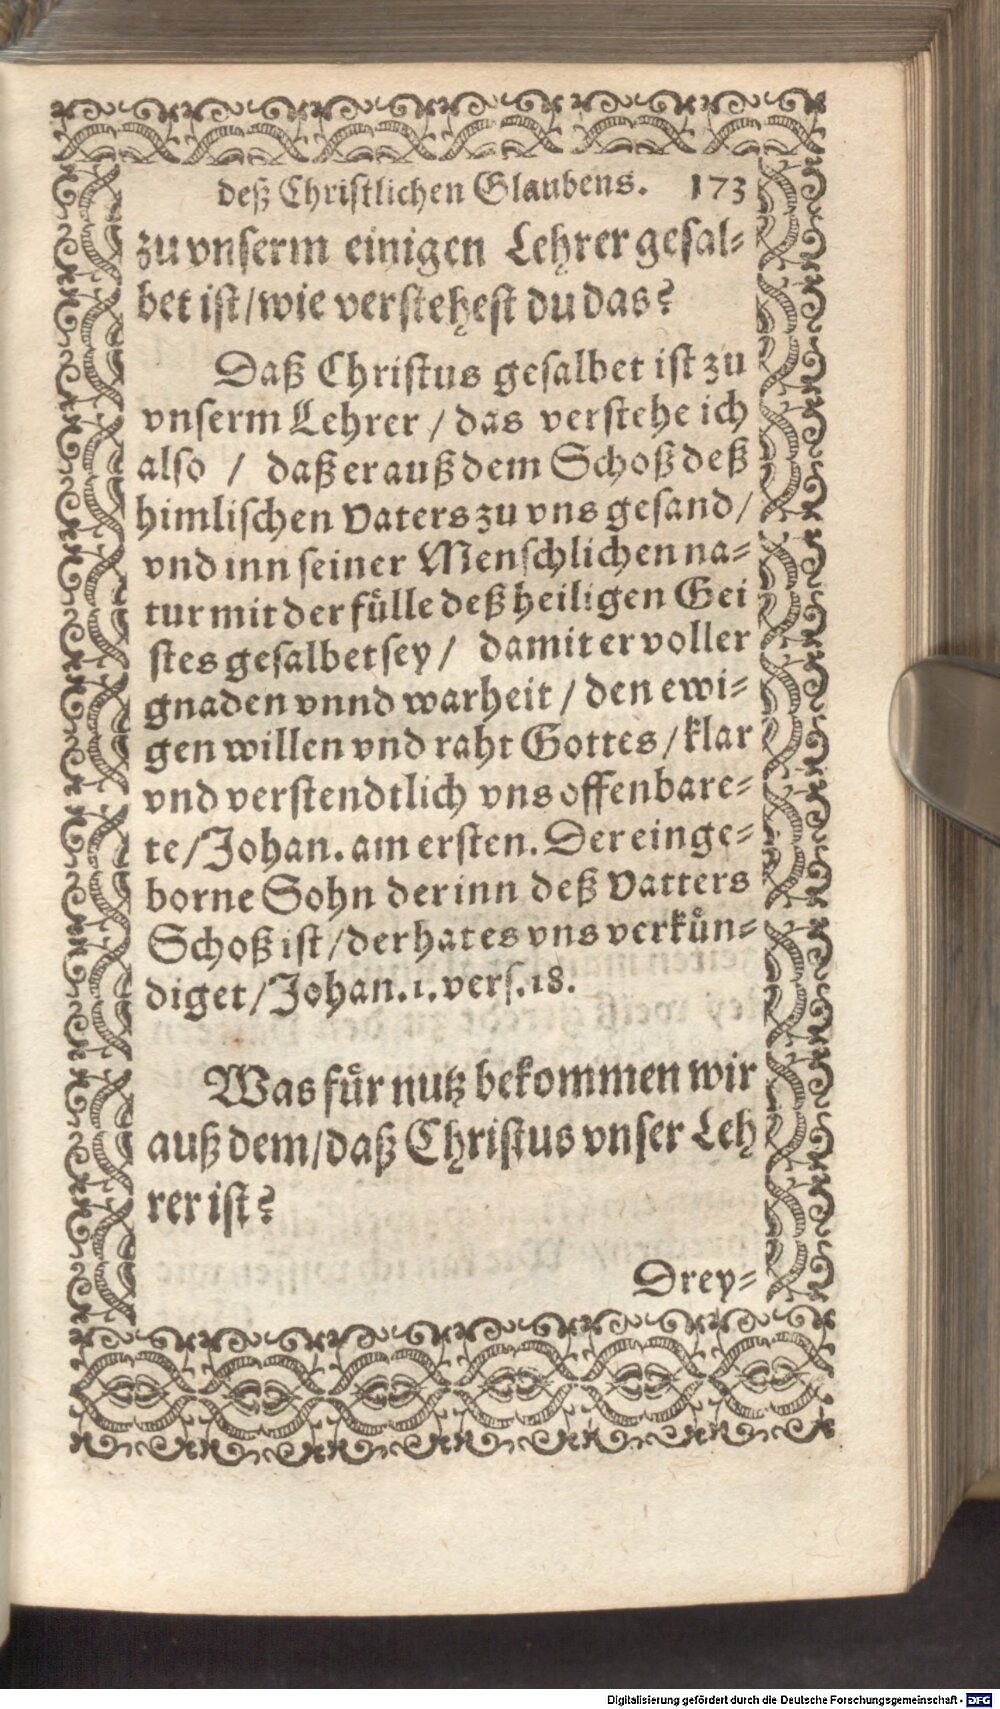 deß Christlichen Glaubens. 173
zu vnserm einigen Lehrer gesal=
bet ist/wie verstehest du das?
Daß Christus gesalbet ist zu
vnserm Lehrer / das verstehe ich
also / daß er auß dem Schoß deß
himlischen Vaters zu vns gesand/
vnd inn seiner Menschlichen na=
tur mit der fuͤlle deß heiligen Gei
stes gesalbet sey / damit er voller
gnaden vnnd warheit / den ewi=
gen willen vnd raht Gottes / klar
vnd verstendtlich vns offenbare=
te/Johan. am ersten. Der einge=
borne Sohn der inn deß Vatters
Schoß ist/der hat es vns verkuͤn=
diget/Johan.1.vers.18.
Was fuͤr nutz bekommen wir
auß dem/daß Christus vnser Leh
rer ist?
Drey=
Digitalisierung gefördert durch die Deutsche Forschungsgemeinschaft - DFG